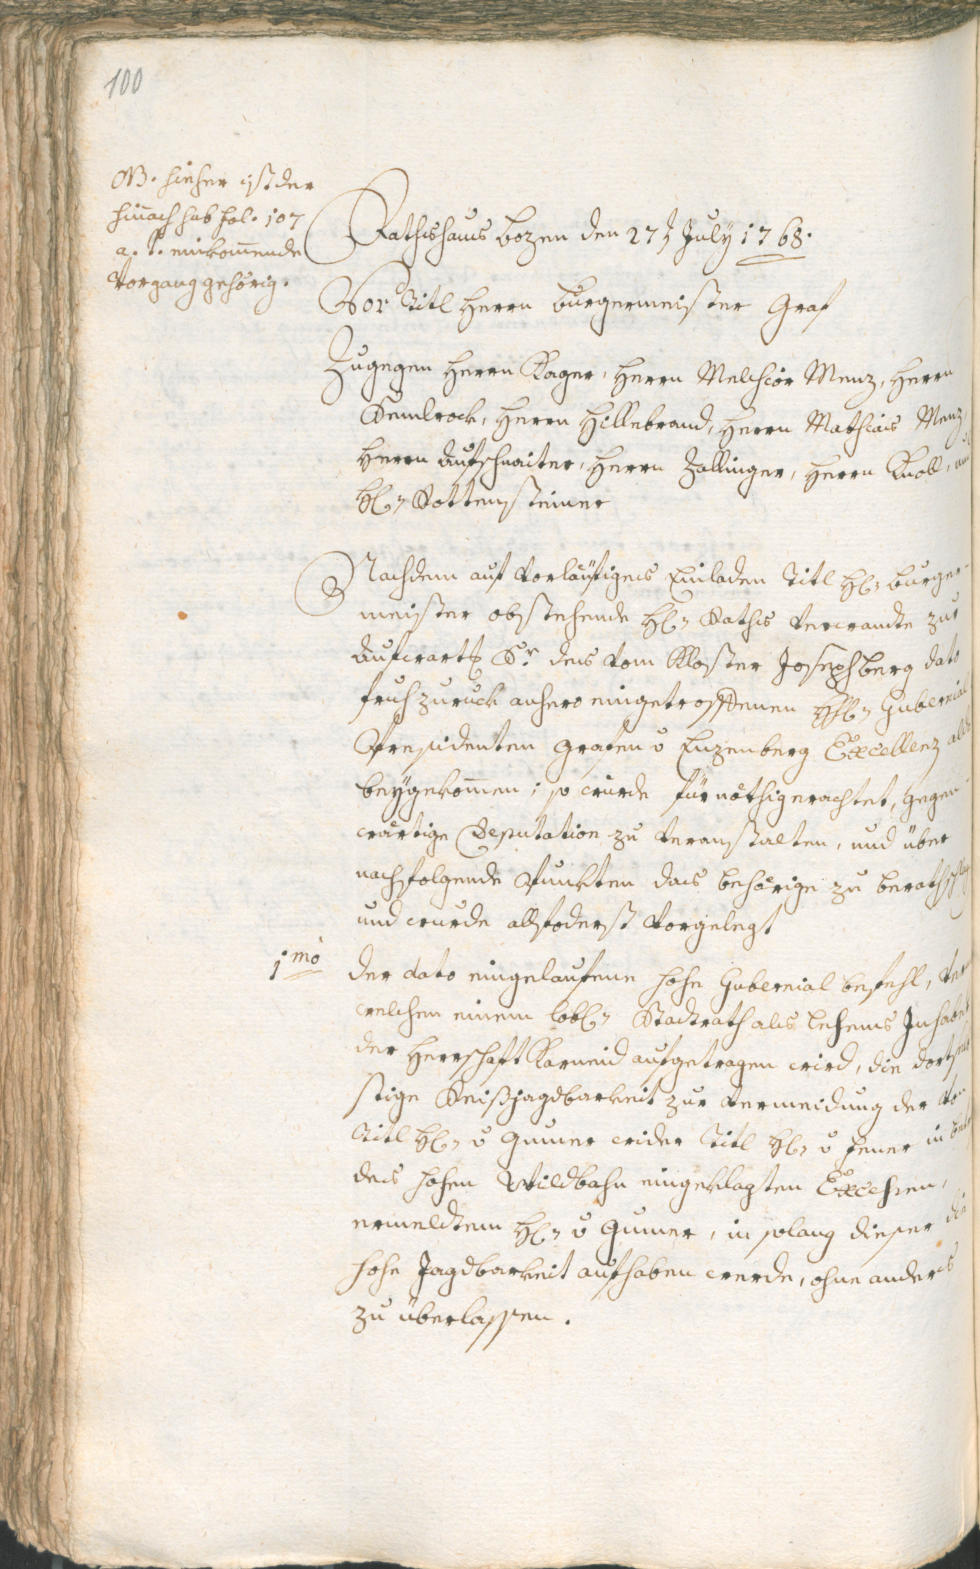 100
NB. hieher ist der
hinach sub fol. 107
a. t. einkom̄ende
Vorgang gehörig.
Rathshaus Bozen den 27ten July 1768.
Vor Titl Herrn Burgermeister Graf
Zugegen Herrn Kager, Herrn Melchior Menz, Herrn
Kemlrock, Herrn Hillebrand, Herrn Mathias Menz,
Herrn Aufschnaiter, Herrn Zallinger, Herrn Knoll,
H: Rottensteiner
Nachdem auf vorläufiges Einladen Titl H: Burger-
meister obstehende H: Raths verwandte zur
Aufwarth Sr. des vom Kloster Josephberg dato
fruh zuruck anhero eingetroffenen H: Gubernial
Presidenten Grafen v Enzenberg Excellenz
beygekom̄en; so wurde für nöthig erachtet, gegen-
wärtige Deputation zu veranstalten, und über
nachfolgende Punkten das behörige zu
und wurde allfoderst vorgelegt
1mo
der dato eingelaufene hohe Gubernial befehl,
welchen einem lobl: Stadtrath als lehens Inhaber
der Herrschaft Karneid aufgetragen wird, die
stige Reißjagdbarkeit zur vermeidung der
Titl H: v Gumer wider Titl H: v Jener in
des hohen Wildbahn eingeklagten Excessen,
ermeldtem H: v Gumer, in solang dieser die
hohe Jagdbarkeit aufhaben werde, ohne anders
zu überlassen.